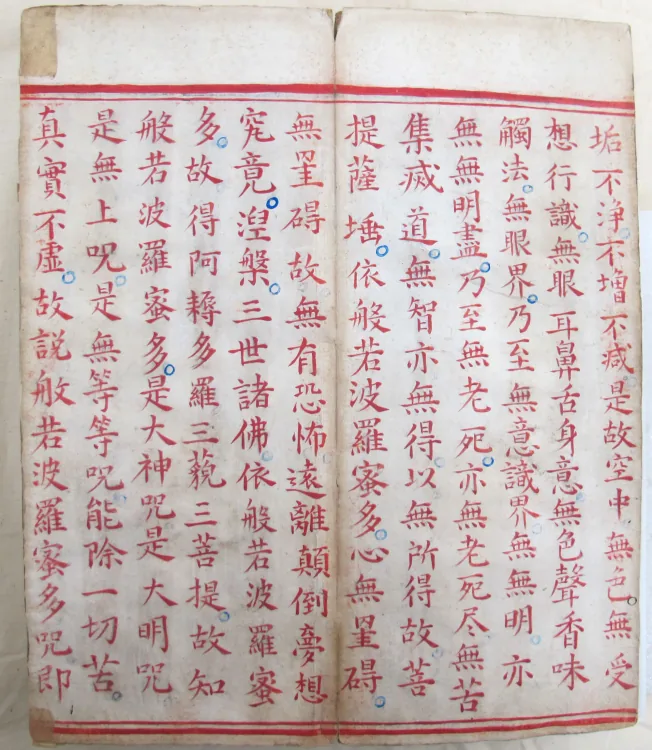 垢不淨。不增不减是故空中。無色。無受
想行識。無眼耳鼻舌身意。無色聲香味
觸法。無眼界。乃至無意識界。無無明。亦
無無明盡。乃至無老死。亦無老死尽。無苦
集滅道。無智亦無得。以無所得故。菩
提薩埵。依般若波羅蜜多。心無罣碍。
無罣碍故。無有恐怖。遠離顛倒夢想
究竟。涅槃。三世諸佛。依般若波羅蜜
多。故得阿耨多羅三藐三菩提。故知
般若波羅蜜多。是大神咒是大明咒
是無上咒。是無等等咒。能除一切苦。
真實不虛。故説般若波羅蜜多咒即